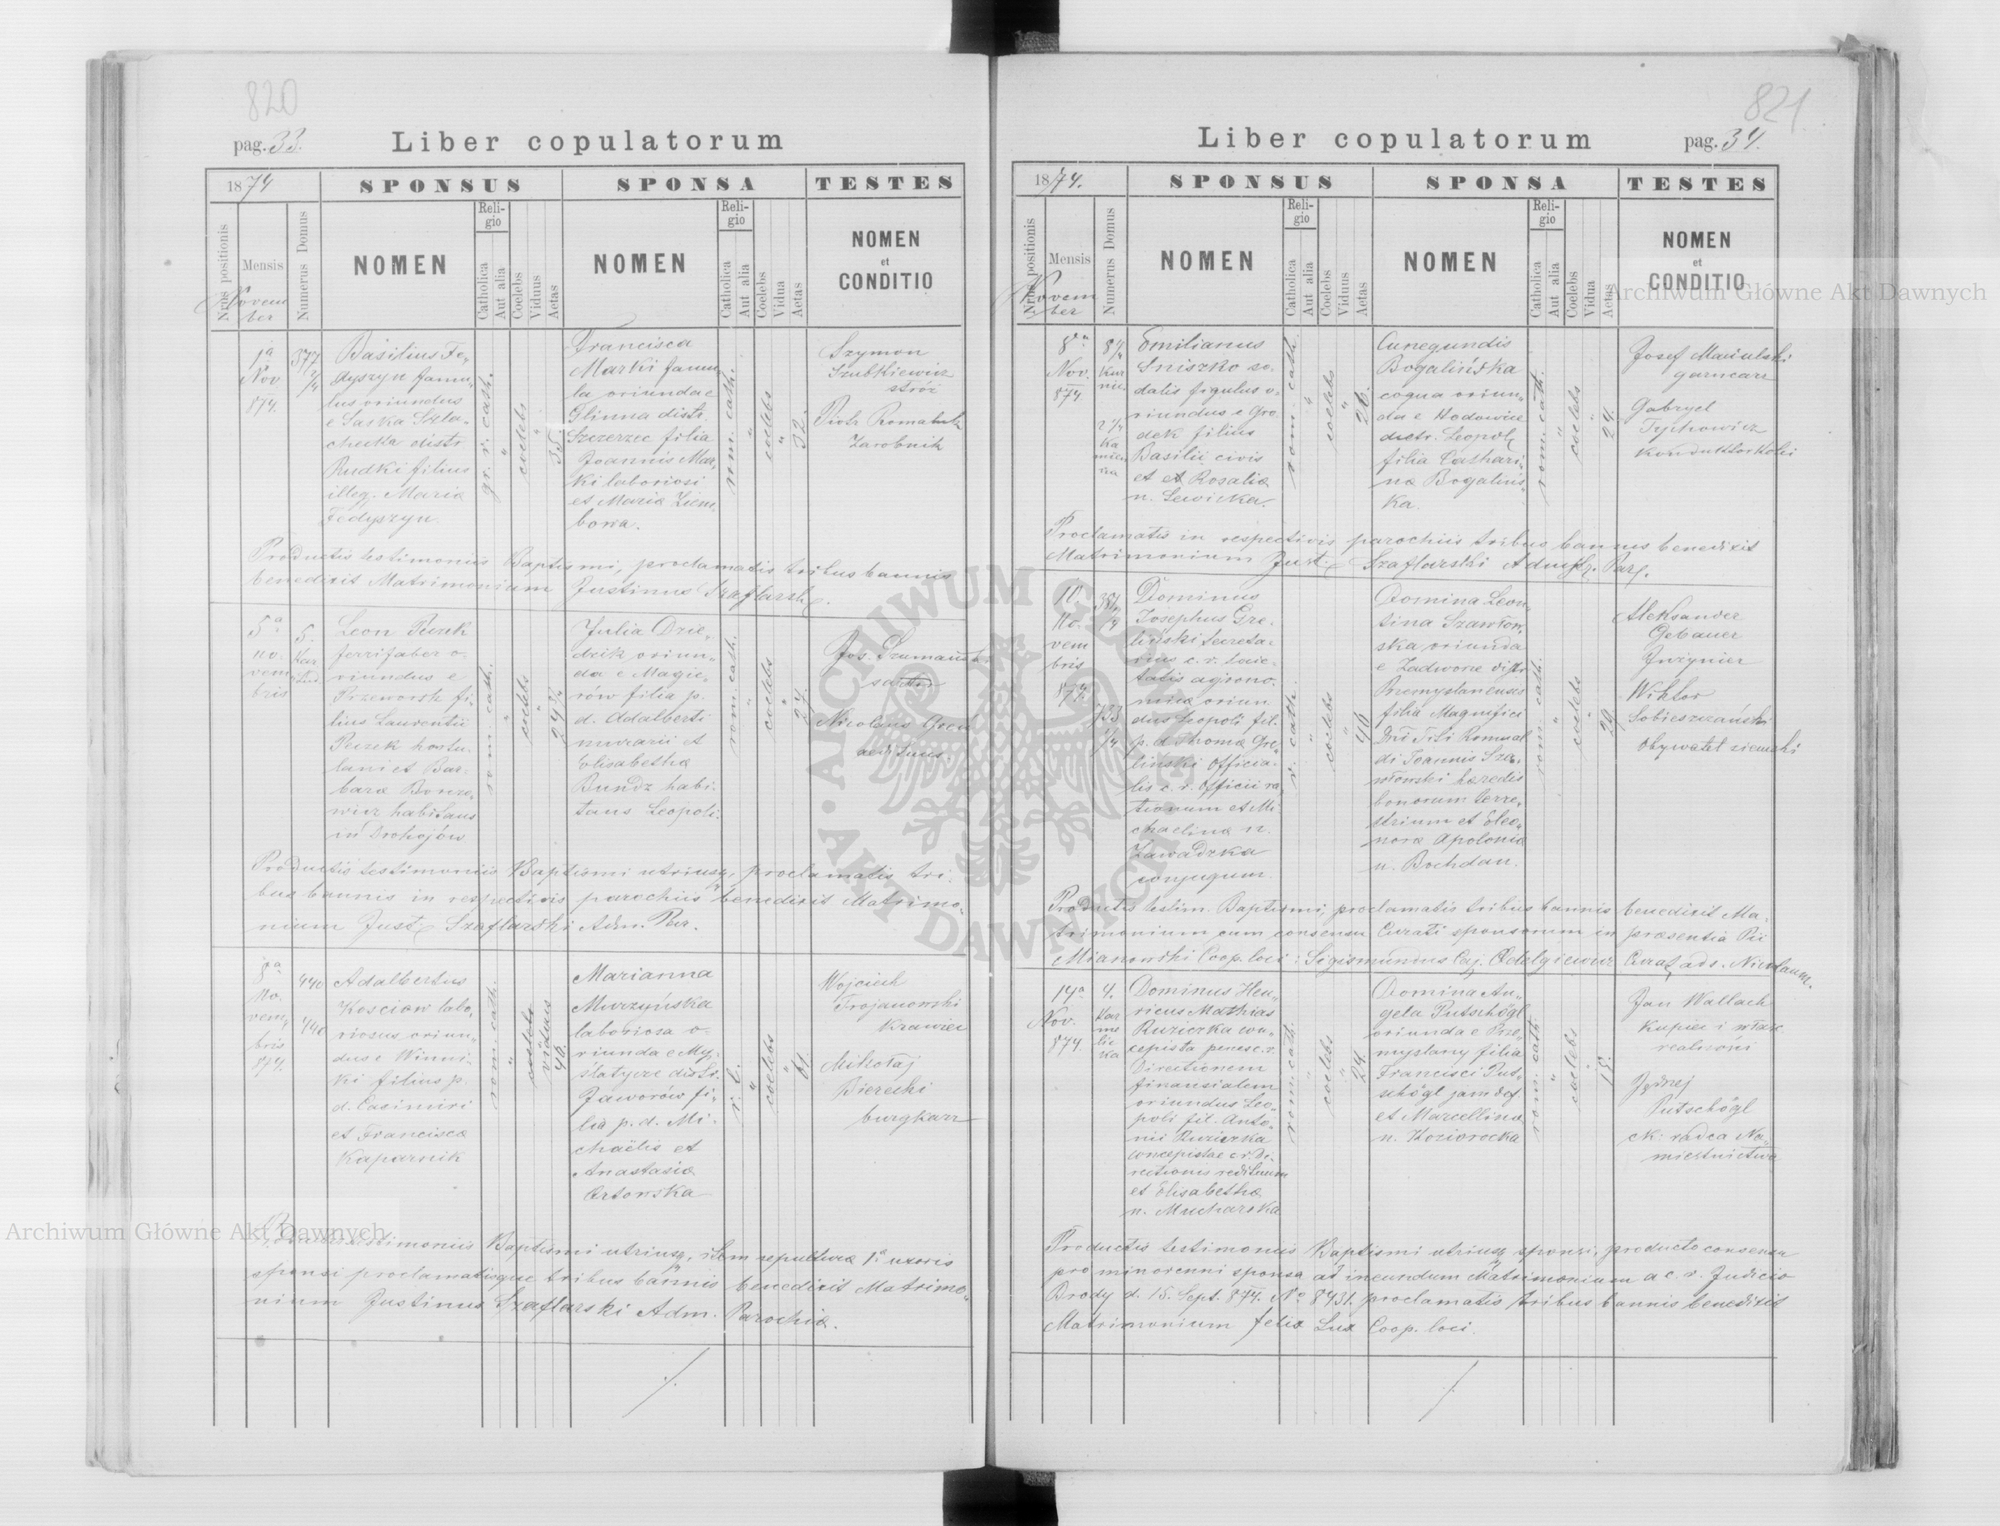 820
pag. 33.
Liber copulatorum
1874
SPONSUS
SPONSA
TESTES
Nrus positionis
Mensis
Novem
ber
Numerus Domus
NOMEN
Religio
Catholica
Aut alia
Coelebs
Viduus
Aetas
NOMEN
Religio
Catholica
Aut alia
Coelebs
Vidua
Aetas
NOMEN
et
CONDITIO
1a
Nov
874.
377
2/4
Basilius Fe-
dyszyn famu-
lus oriundus
e Laska Szla-
checka distr.
Rudki filius
illeg. Mariæ
Fedyszyn.
gr. r. cath.
"
coelebs
"
35.
Francisca
Marki famu-
la oriunda e
Glinna distr.
Szczerzec filia
Joannis Mar-
ki laboriosi
et Mariæ Ziem-
bowa.
rom. cath.
"
coelebs
"
32.
Szymon
Szubkiewicz
stróż
Piotr Romaniuk
Zarobnik
Productis testimoniis Baptismi, proclamatis tribus bannis
benedixit Matrimonium Justinus Szaflarski.
5a
No-
vem
bris
5.
Leon Puzek
ferrifaber o-
riundus e
Przeworsk fi-
lius Laurentii
Puzek hortu-
lani et Bar-
baræ Bonze-
wicz habitans
in Drohojów
rom. cath.
"
coelebs
"
24 3/4
Julia Dzie-
dzik oriun-
da e Magie-
rów filia p.
d. Adalberti
murarii et
Elisabethæ
Bundz habi-
tans Leopoli.
rom. cath.
"
coelebs
"
24.
Jos. Szumański
sartor
Nicolaus Gren
aedituus.
Productis testimoniis Baptismi utriusq, proclamatis tri-
bus bannis in respectivis parochiis benedixit Matrimo-
nium Just. Szaflarski Adm. Par.
8a
No-
vem
bris
874.
440
440
Adalbertus
Kosciow labo-
riosus oriun-
dus e Winni-
ki filius p.
d. Casimiri
et Franciscæ
Kaparnik
rom. cath.
"
coelebs
viduus
40.
Marianna
Murzyńska
laboriosa o-
riunda e My-
slatycze distr.
Jaworów fi-
lia p. d. Mi-
chaëlis et
Anastasiæ
Ortowska
r. c.
"
coelebs
"
41.
Wojciech
Trojanowski
Krawiec
Mikołaj
Bierecki
burgkarz
Productis testimoniis Baptismi utriusq, item sepulturæ 1æ uxoris
sponsi proclamatisque tribus bannis benedixit Matrimo-
nium Justinus Szaflarski Adm. Parochiæ.
821
Liber copulatorum
pag. 34.
1874.
SPONSUS
SPONSA
TESTES
Nrus positionis
Mensis
Novem
ber
Numerus Domus
NOMEN
Religio
Catholica
Aut alia
Coelebs
Viduus
Aetas
NOMEN
Religio
Catholica
Aut alia
Coelebs
Vidua
Aetas
NOMEN
et
CONDITIO
8va
Nov.
874
Emilianus
Sniszko so-
dalis figulus o-
riundus e Gro-
dek filius
Basilii civis
et Rosaliæ
n. Lewicka.
rom. cath.
"
coelebs
"
26.
Cunegundis
Bogalińska
coqua oriun-
da e Hodowice
distr. Leopol.
filia Cathari-
næ Bogaliń-
ska.
rom. cath.
"
coelebs
"
24.
Josef Maciulski
garncarz
Gabryel
Tychowicz
Konduktor kolei
Proclamatis in respectivis parochiis tribus bannis benedixit
Matrimonium Just. Szaflarski Adm. Par.
10.
No-
vem
bris
874.
Dominus
Josephus Gre-
liński Secreta-
rius c. r. Socie-
tatis agrono-
micæ oriun-
dus Leopoli fil.
p. d. Thomæ Gre-
liński Officia-
lis c. r. Officii ra-
tionum et Mi-
chaelinæ n.
Zawadzka
conjugum.
r. cath.
"
coelebs
"
40
Domina Leon-
tina Szawłow-
ska oriunda
e Zadworze distr.
Przemyslanensis
filia Magnifici
Romual-
di Joannis Sza-
włowski hæredis
bonorum terre-
strium et Eleo-
noræ Apoloniæ
n. Bochdan.
rom. cath.
"
coelebs
"
29.
Aleksander
Gebauer
Inżynier
Wiktor
Sobieszczański
obywatel ziemski
Productis testim. Baptismi, proclamatis tribus bannis benedixit Ma-
trimonium cum consensu Curati sponsorum in præsentia Pii
Mianowski Coop. loci: Sigismundus Odelgiewicz Curat. ads. Nicolaum.
14a
Nov.
874.
4.
Kar
me
lic
ka
Dominus Hen-
ricus Mathias
Ruziczka con-
cepista penes c. r.
Directionem
finansialem
oriundus Leo-
poli fil. Anto-
nii Ruziczka
concepistæ c. r. Di-
rectionis redituum
et Elisabethæ
n. Mucharska
rom. cath.
"
coelebs
"
24.
Domina An-
gela Putschögl
oriunda e Prze-
myslany filia
Francisci Put-
schögl jam def.
et Marcellinæ
n. Koziorocka
rom. cath.
"
coelebs
"
18.
Jan Wallach
Kupiec i właśc.
realności
Jędrzej
Putschögl
ck. radca Na-
miestnictwa
Productis testimoniis Baptismi utriusq sponsi, producto consensu
pro minorenni sponsa ad ineundum Matrimonium a c. r. Judicio
Brody d. 15. Sept. 874. No 8431. proclamatis tribus bannis benedixit
Matrimonium Felix Lux Coop. loci.
Archiwum Główne Akt Dawnych
Archiwum Główne Akt Dawnych
ARCHIWUM GŁÓWNE AKT DAWNYCH